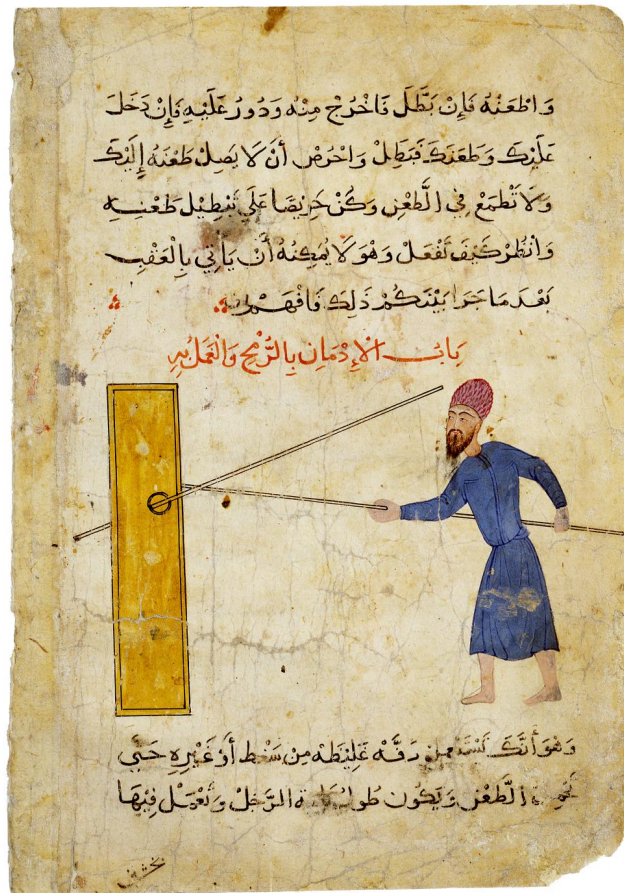 وَاطْعَنْهُ فَإِنْ بَطَّلَ فَاخْرُجْ مِنْهُ وَدُورْ عَلَيْهِ فَإِنْ دَخَلَ
عَلَيْكَ وَطَعَنَكَ فَبَطِّلْ وَاحْرُصْ أَنْ لَا يَصِلْ طَعْنُهُ إِلَيْكَ
وَلَا تَطْمَعْ فِي الطَّعْنِ وَكُنْ حَرِيصًا عَلَى تَبْطِيلْ طَعْنِهِ
وَانْظُرْ كَيْفَ تَفْعَلْ وَهُوَ لَا يُمْكِنُهُ أَنْ يَأْتِي بِالْعَقْبِ
بَعْدَ مَا جَرَا بَيْنَكُمْ ذَلِكَ فَافْهَمْ
بَابُ الْإِدْمَانِ بِالرُّمْحِ وَالْعَمَلُ بِهِ
وَهُوَ أَنَّكَ دَفَّهْ غَلِيظَهْ مِنْ سَنْط أَوْ غَيْرِهِ حَتَّي
الطَّعْنِ وَيَكُون الرَّجُلْ وَتَعْمَلْ فِيهَا